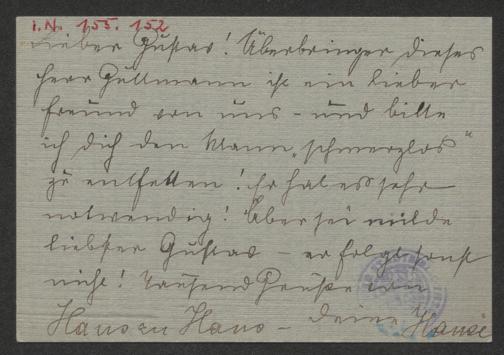 I.N. 155.152
Lieber Gustav! Überbringer dieses
Herr Güttmann ist ein lieber
Freund von uns - und bitte
ich dich den Mann „schmerzlos"
zu entfetten! Er hat es sehr
notwendig! Aber sei milde
liebster Gustav - er folgt sonst
nicht! Tausend Grüße von
Haus zu Haus - Deine Hansi